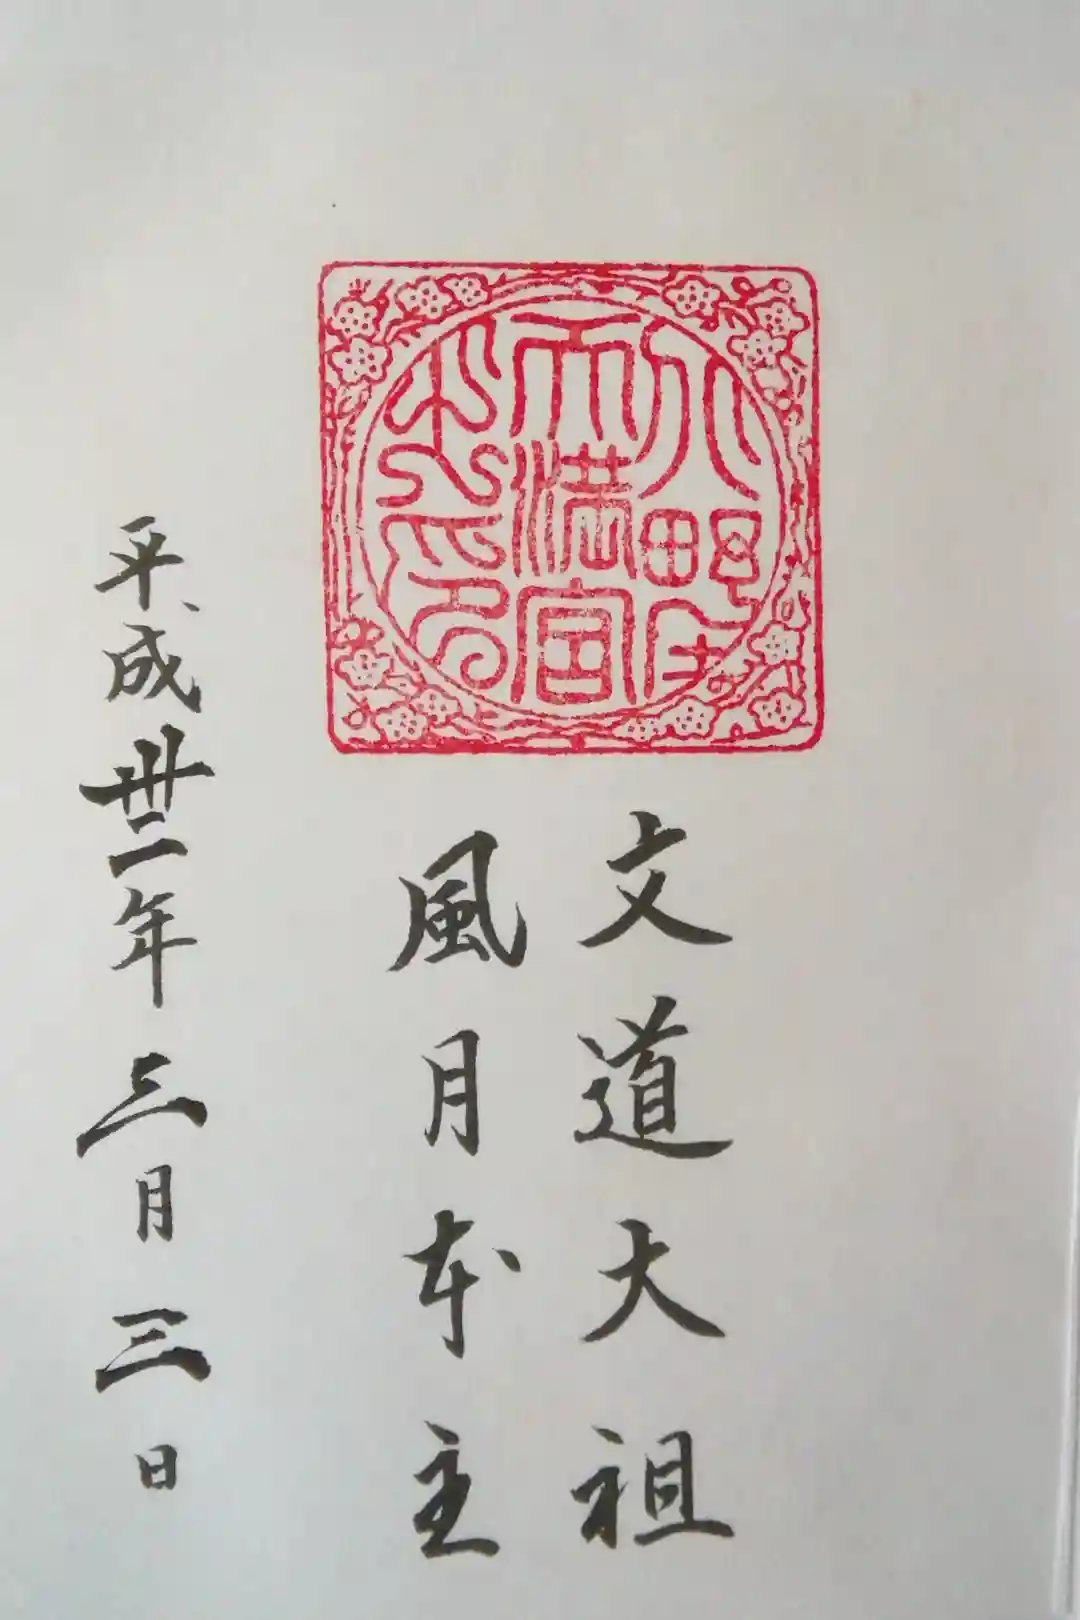 天満宮
文道大祖
風月本主
平成丗一年三月三日